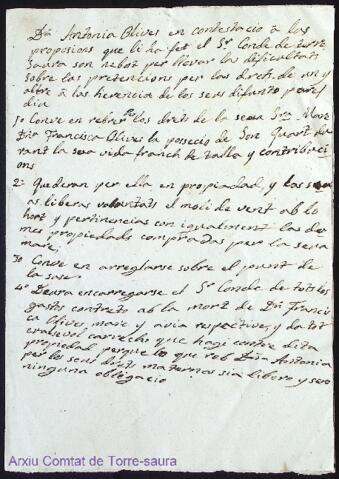 Dña Antonia Olives en contestacio á las
proposions que li ha fet el Sr Conde de torre
Saura son nebot per llevar las dificultats
sobre las pretencions per los drets de un y
altre á las herencia de los seus difunts pares
dia
1o Conve en rebrer per los drets de la seua Sra Mare
Dña Francisca Olives la posecio de Son Quart du
rant la seva vida franch de talla y contribuci
ons
2o Quedaran per ella en propiedad, y á las seuas
liberas voluntats el moli de vent ab lo
hort y pertinencias con igualment las de
mes propiedads compradas per la seva
mare
3o Conve en arreglarse sobre el punt de
la
4o Deura encarregarse el Sr Conde de tots los
gastos contrets ab la mort de Dña Francis
ca Olives, mare y avia respectives, y de tot
calsevol carrechs que hagi contre dita
propiedad perque lo que reb Dña Antonia
per los seus drets maternos sia libero y sens
ninguna obligacio
Arxiu Comtat de Torre-saura